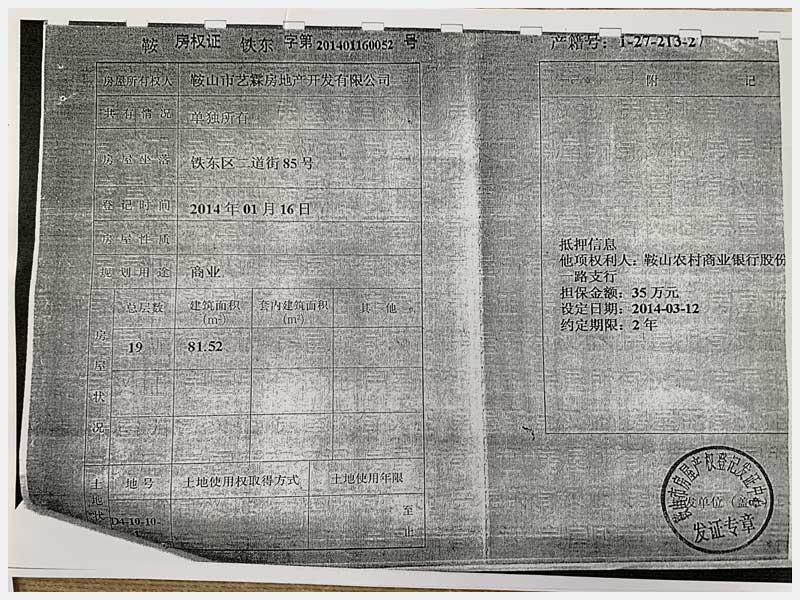 鞍 房权证 铁东 字第 201401160052 号
产籍号：1-27-213-27
房屋所有权人 鞍山市艺霖房地产开发有限公司
共有情况 单独所有
房屋坐落 铁东区二道街85号
登记时间 2014年01月16日
房屋性质
规划用途 商业
房屋状况
总层数 建筑面积(m²) 套内建筑面积(m²) 其他
19 81.52
土地状
地号 土地使用权取得方式 土地使用年限
D4-10-10-
至
止
附 记
抵押信息
他项权利人：鞍山农村商业银行股份
一路支行
担保金额：35万元
设定日期：2014-03-12
约定期限：2年
鞍山市房屋产权登记发证中心
发单位（盖
发证专章